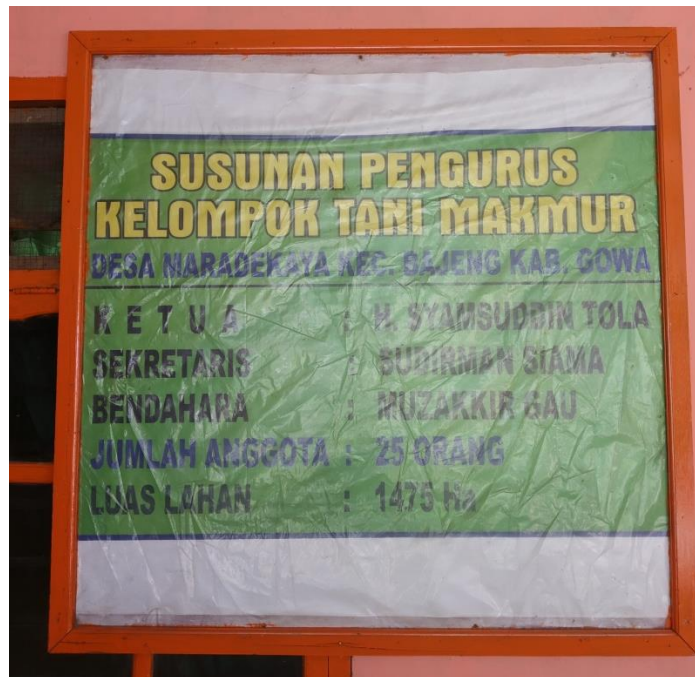 SUSUNAN PENGURUS
KELOMPOK TANI MAKMUR
DESA MARADEKAYA KEC. BAJENG KAB. GOWA
K E T U A : H. SYAMSUDDIN TOLA
SEKRETARIS : SUDIRMAN SIAMA
BENDAHARA : MUZAKKIR GAU
JUMLAH ANGGOTA : 25 ORANG
LUAS LAHAN : 1475 Ha